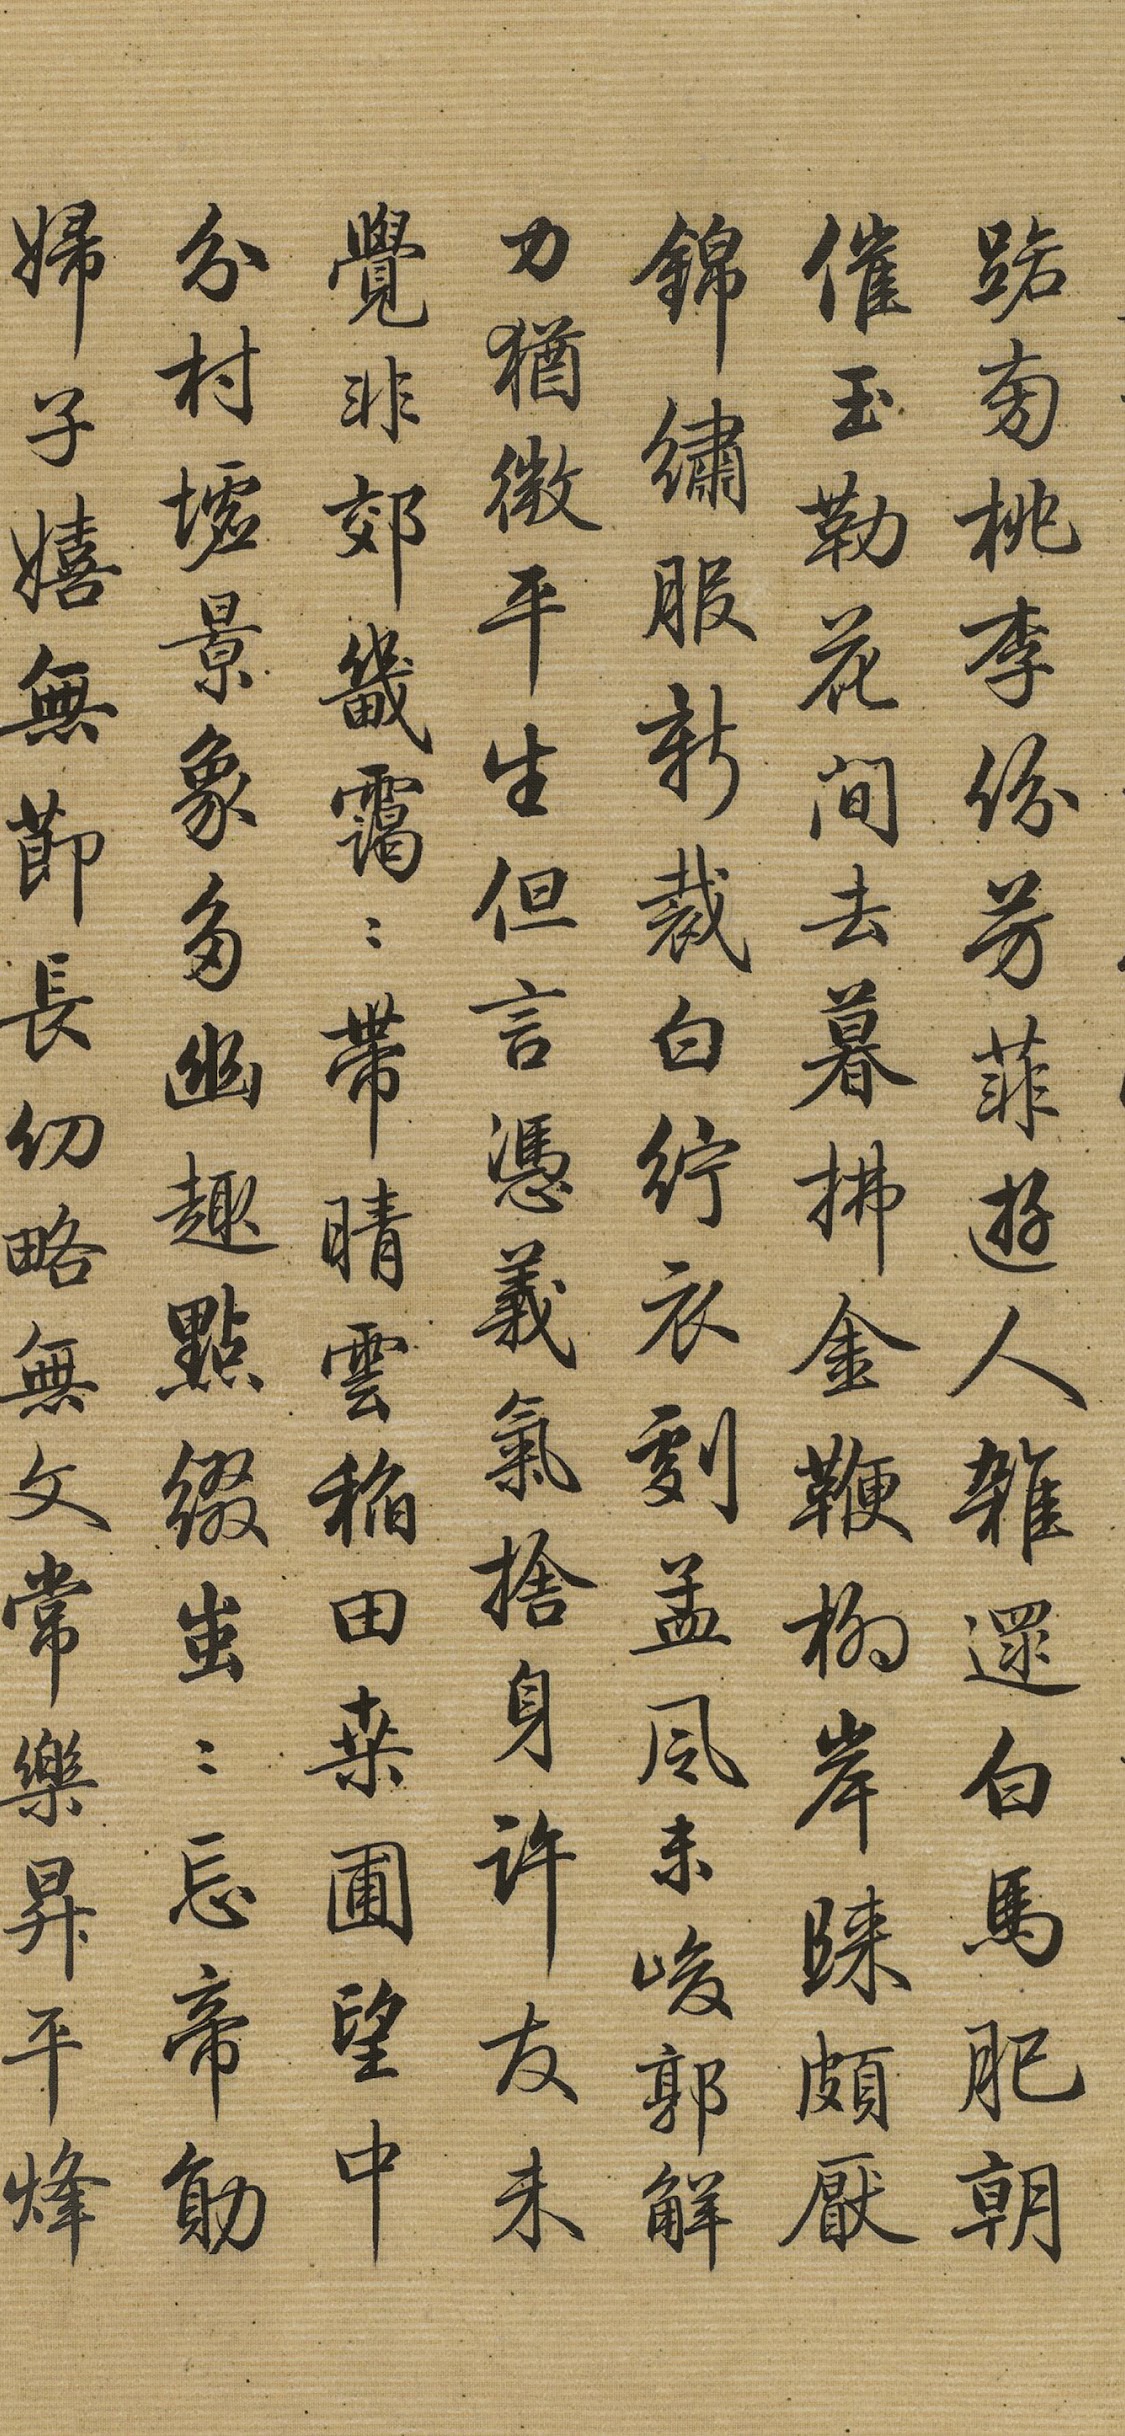 踞南桃李份芳菲遊人雜還白馬肥朝
催玉勒花間去暮拂金鞭柳岸睐頗厭
錦繡服新裁白紵衣劇孟風未峻郭解
力猶微平生但言憑義氣捨身許友未
覺非郊畿靄〻帶晴雲稻田桒圃望中
分村墟景象多幽趣點綴蚩〻忘帝勛
婦子嬉無節長幼略無文常樂昇平烽